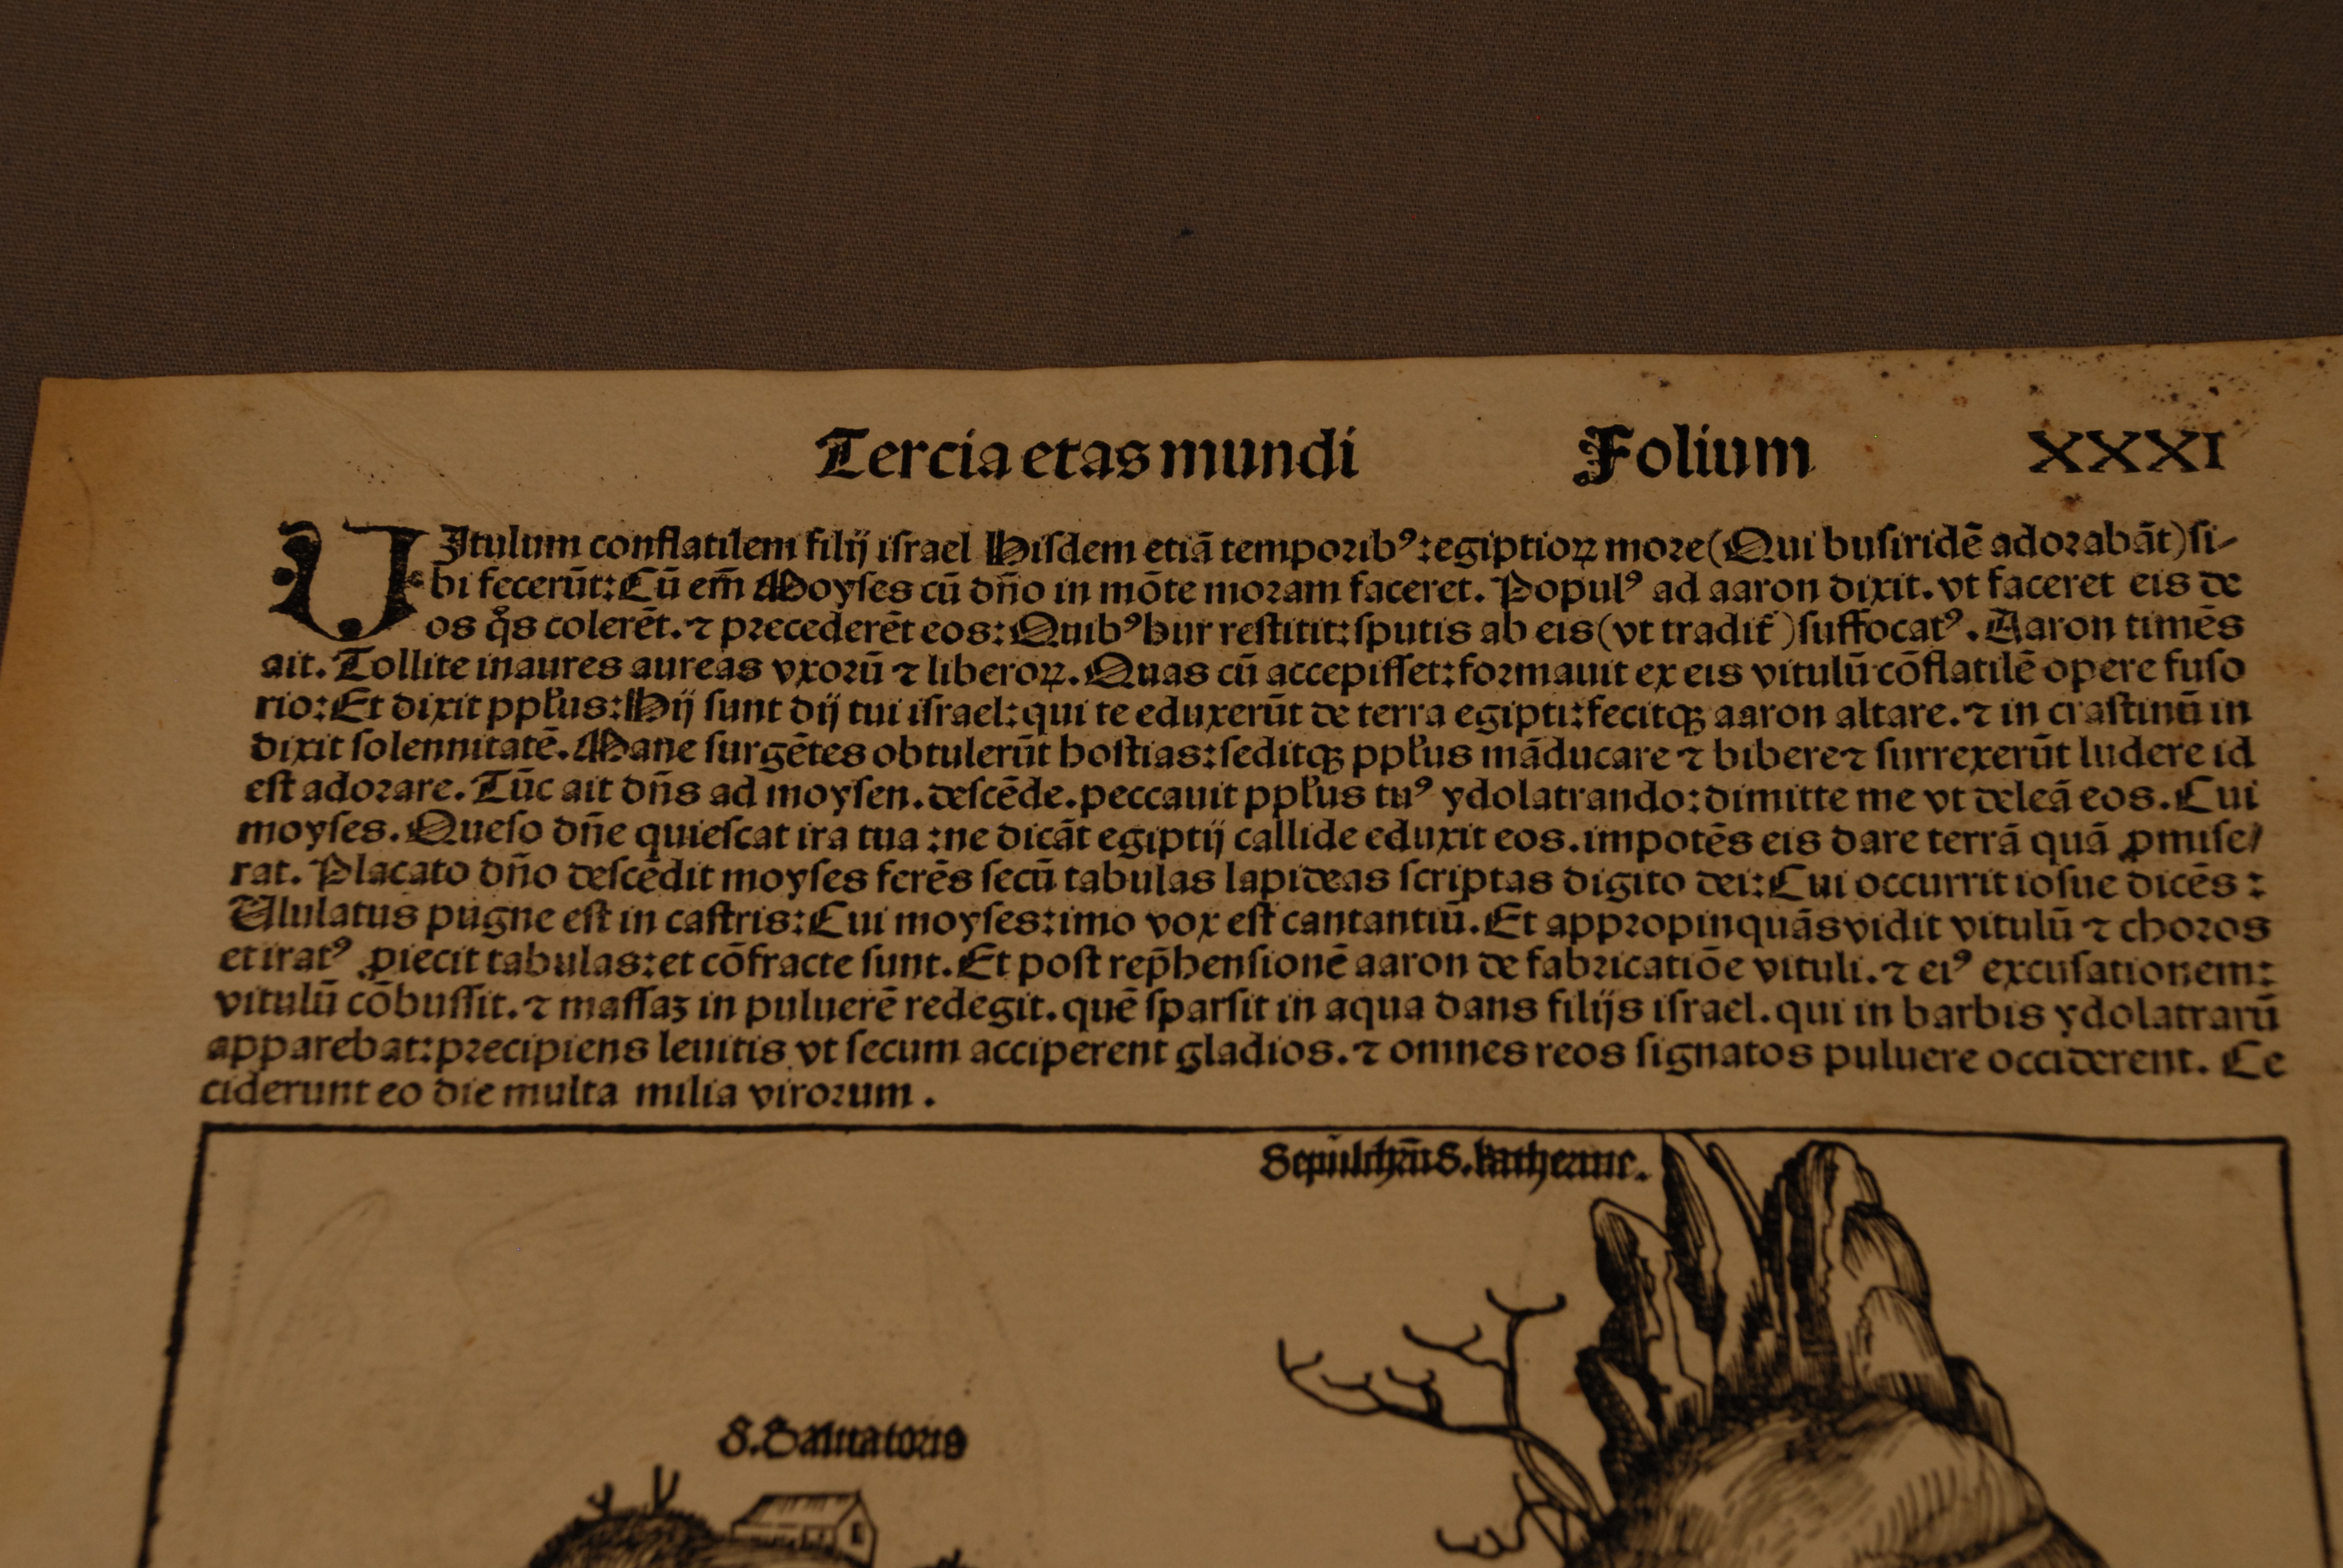 Tercia etas mundi Folium XXXI
VItulum conflatilem filij israel Hisdem etiā temporibꝰ:egiptioꝝ more(Qui busiridē adorabāt)si-
bi fecerūt:Cū em̄ Moyses cū dn̄o in mōte moram faceret. Populꝰ ad aaron dixit.vt faceret eis de
os q̊s colerēt.⁊ precederēt eos:Quibꝰhur restitit:sputis ab eis(vt tradit᷑)suffocatꝰ.Aaron timēs
ait.Tollite inaures aureas vxorū ⁊ liberoꝝ.Quas cū accepisset:formauit ex eis vitulū cōflatilē opere fuso
rio:Et dixit ppl̄us:Hij sunt dij tui israel:qui te eduxerūt de terra egipti:fecitqꝫ aaron altare.⁊ in crastinū in
dixit solennitatē.Mane surgētes obtulerūt hostias:seditqꝫ ppl̄us māducare ⁊ bibere⁊ surrexerūt ludere id
est adorare.Tūc ait dn̄s ad moysen.descēde.peccauit ppl̄us tuꝰ ydolatrando:dimitte me vt deleā eos.Cui
moyses.Queso dn̄e quiescat ira tua :ne dicāt egiptij callide eduxit eos.impotēs eis dare terrā quā ꝓmise/
rat.Placato dn̄o descēdit moyses ferēs secū tabulas lapideas scriptas digito dei:Cui occurrit iosue dicēs :
Ululatus pugne est in castris:Cui moyses:imo vox est cantantiū.Et appropinquās vidit vitulū ⁊ choros
et iratꝰ ꝓiecit tabulas:et cōfracte sunt.Et post rep̄hensionē aaron de fabricatiōe vituli.⁊ eiꝰ excusationem:
vitulū cōbussit.⁊ massaꝫ in puluerē redegit.quē sparsit in aqua dans filijs israel.qui in barbis ydolatrarū
apparebat:precipiens leuitis vt secum acciperent gladios.⁊ omnes reos signatos puluere occiderent. Ce
ciderunt eo die multa milia virorum .
Sepulchrū S. katherine.
S. Saluatoris